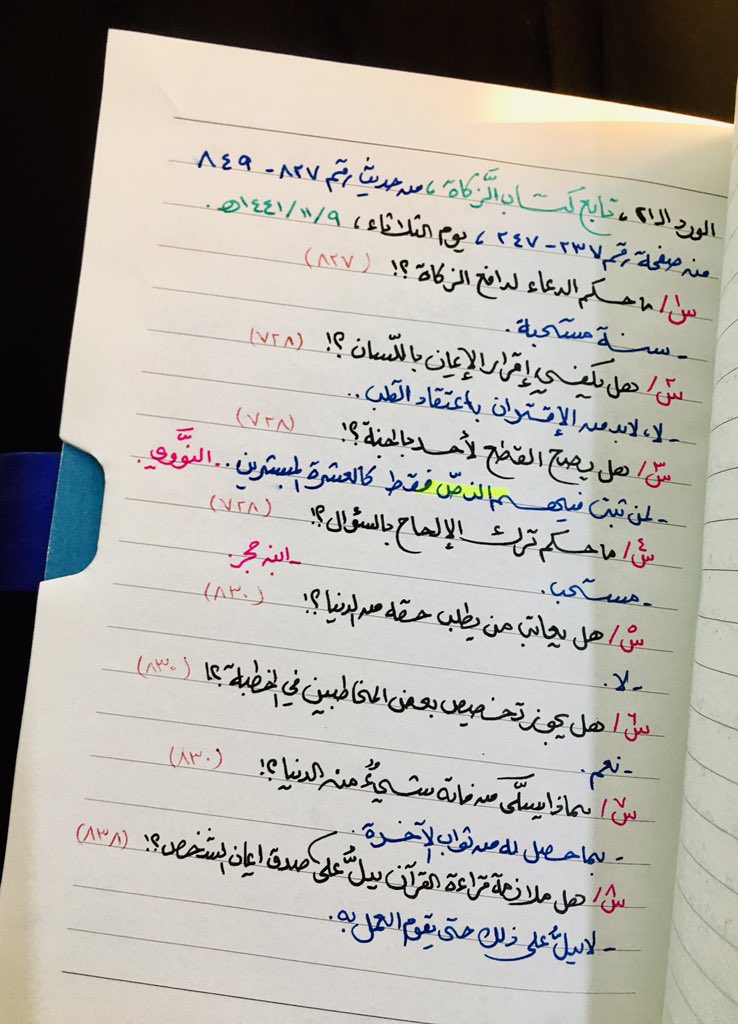 الورد الـ٢١، تابع كتاب الزَّكاة، من حديث رقم ٨٢٧- ٨٤٩
من صفحة رقم ٢٣٧- ٢٤٧، يوم الثلاثاء، ١٤٤١/١١/٩هـ.
س١/ ما حكم الدعاء لدافع الزكاة؟! (٨٢٧)
- سنة مستحبة.
س٢/ هل يكفي إقرار الإيمان باللّسان؟! (٧٢٨)
- لا، لابد من الإقتران باعتقاد القلب..
س٣/ هل يصح القطع لأحد بالجنة؟! (٧٢٨)
- لمن ثبت فيهم النصّ فقط كالعشرة المبشرين.. النَّووي.
س٤/ ما حكم ترك الإلحاح بالسؤال؟! (٧٢٨)
- مستحب. - ابن حجر.
س٥/ هل يعاتب من يطلب حقه من الدنيا؟! (٨٣٠)
- لا.
س٦/ هل يجوز تخصيص بعض المخاطبين في الخطبة؟! (٨٣٠)
- نعم.
س٧/ بماذا يسلَّى من فاته شيءٌ من الدنيا؟! (٨٣٠)
- بما حصل له من ثواب الآخرة.
س٨/ هل ملازمة قراءة القرآن يدلُّ على صدق ايمان الشخص؟! (٨٣٨)
- لا يدلُّ على ذلك حتى يقوم العمل به.